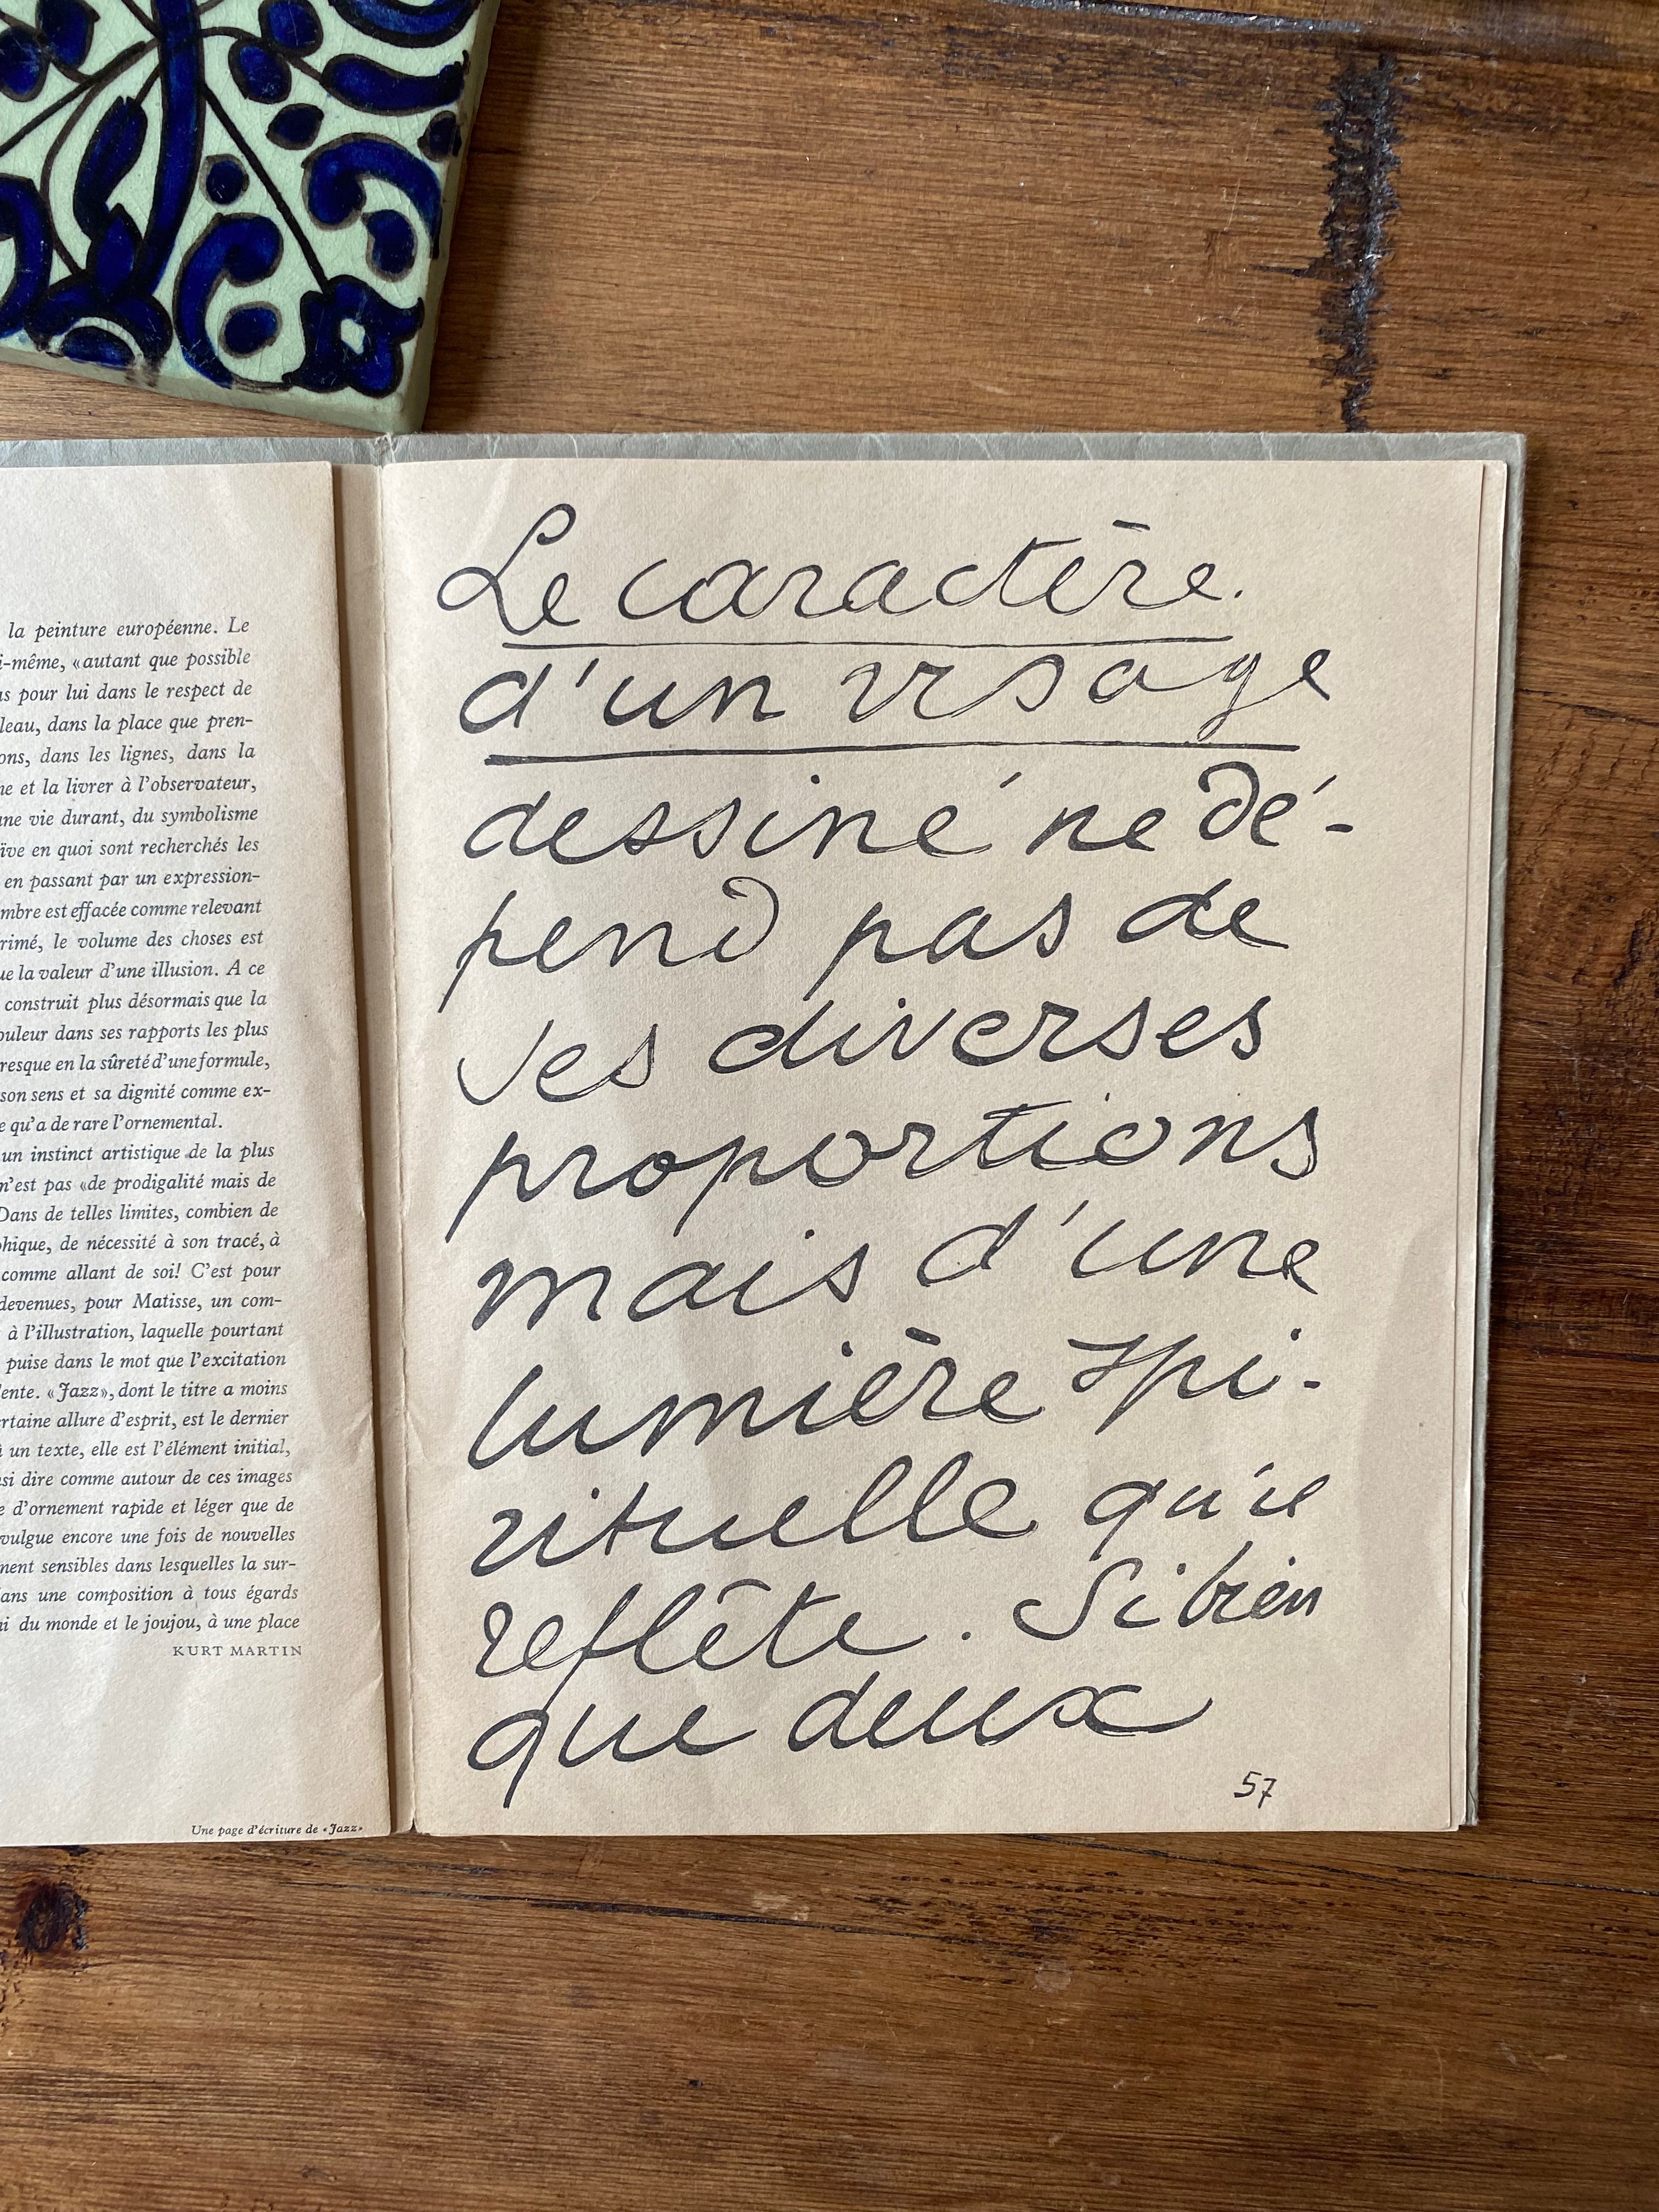 la peinture européenne. Le
i-même, «autant que possible
s pour lui dans le respect de
leau, dans la place que pren-
ons, dans les lignes, dans la
ne et la livrer à l'observateur,
une vie durant, du symbolisme
ïve en quoi sont recherchés les
en passant par un expression-
mbre est effacée comme relevant
rimé, le volume des choses est
ue la valeur d'une illusion. A ce
construit plus désormais que la
ouleur dans ses rapports les plus
resque en la sûreté d'une formule,
son sens et sa dignité comme ex-
e qu'a de rare l'ornemental.
un instinct artistique de la plus
n'est pas «de prodigalité mais de
Dans de telles limites, combien de
phique, de nécessité à son tracé, à
comme allant de soi! C'est pour
devenues, pour Matisse, un com-
à l'illustration, laquelle pourtant
puise dans le mot que l'excitation
ente. «Jazz», dont le titre a moins
ertaine allure d'esprit, est le dernier
à un texte, elle est l'élément initial,
si dire comme autour de ces images
e d'ornement rapide et léger que de
vulgue encore une fois de nouvelles
ment sensibles dans lesquelles la sur-
ans une composition à tous égards
i du monde et le joujou, à une place
KURT MARTIN
Une page d'écriture de «Jazz»
Le caractère.
d'un visage
dessiné ne dé-
pend pas de
ses diverses
proportions
mais d'une
lumière spi-
rituelle qu'il
reflète. Si bien
que deux
57